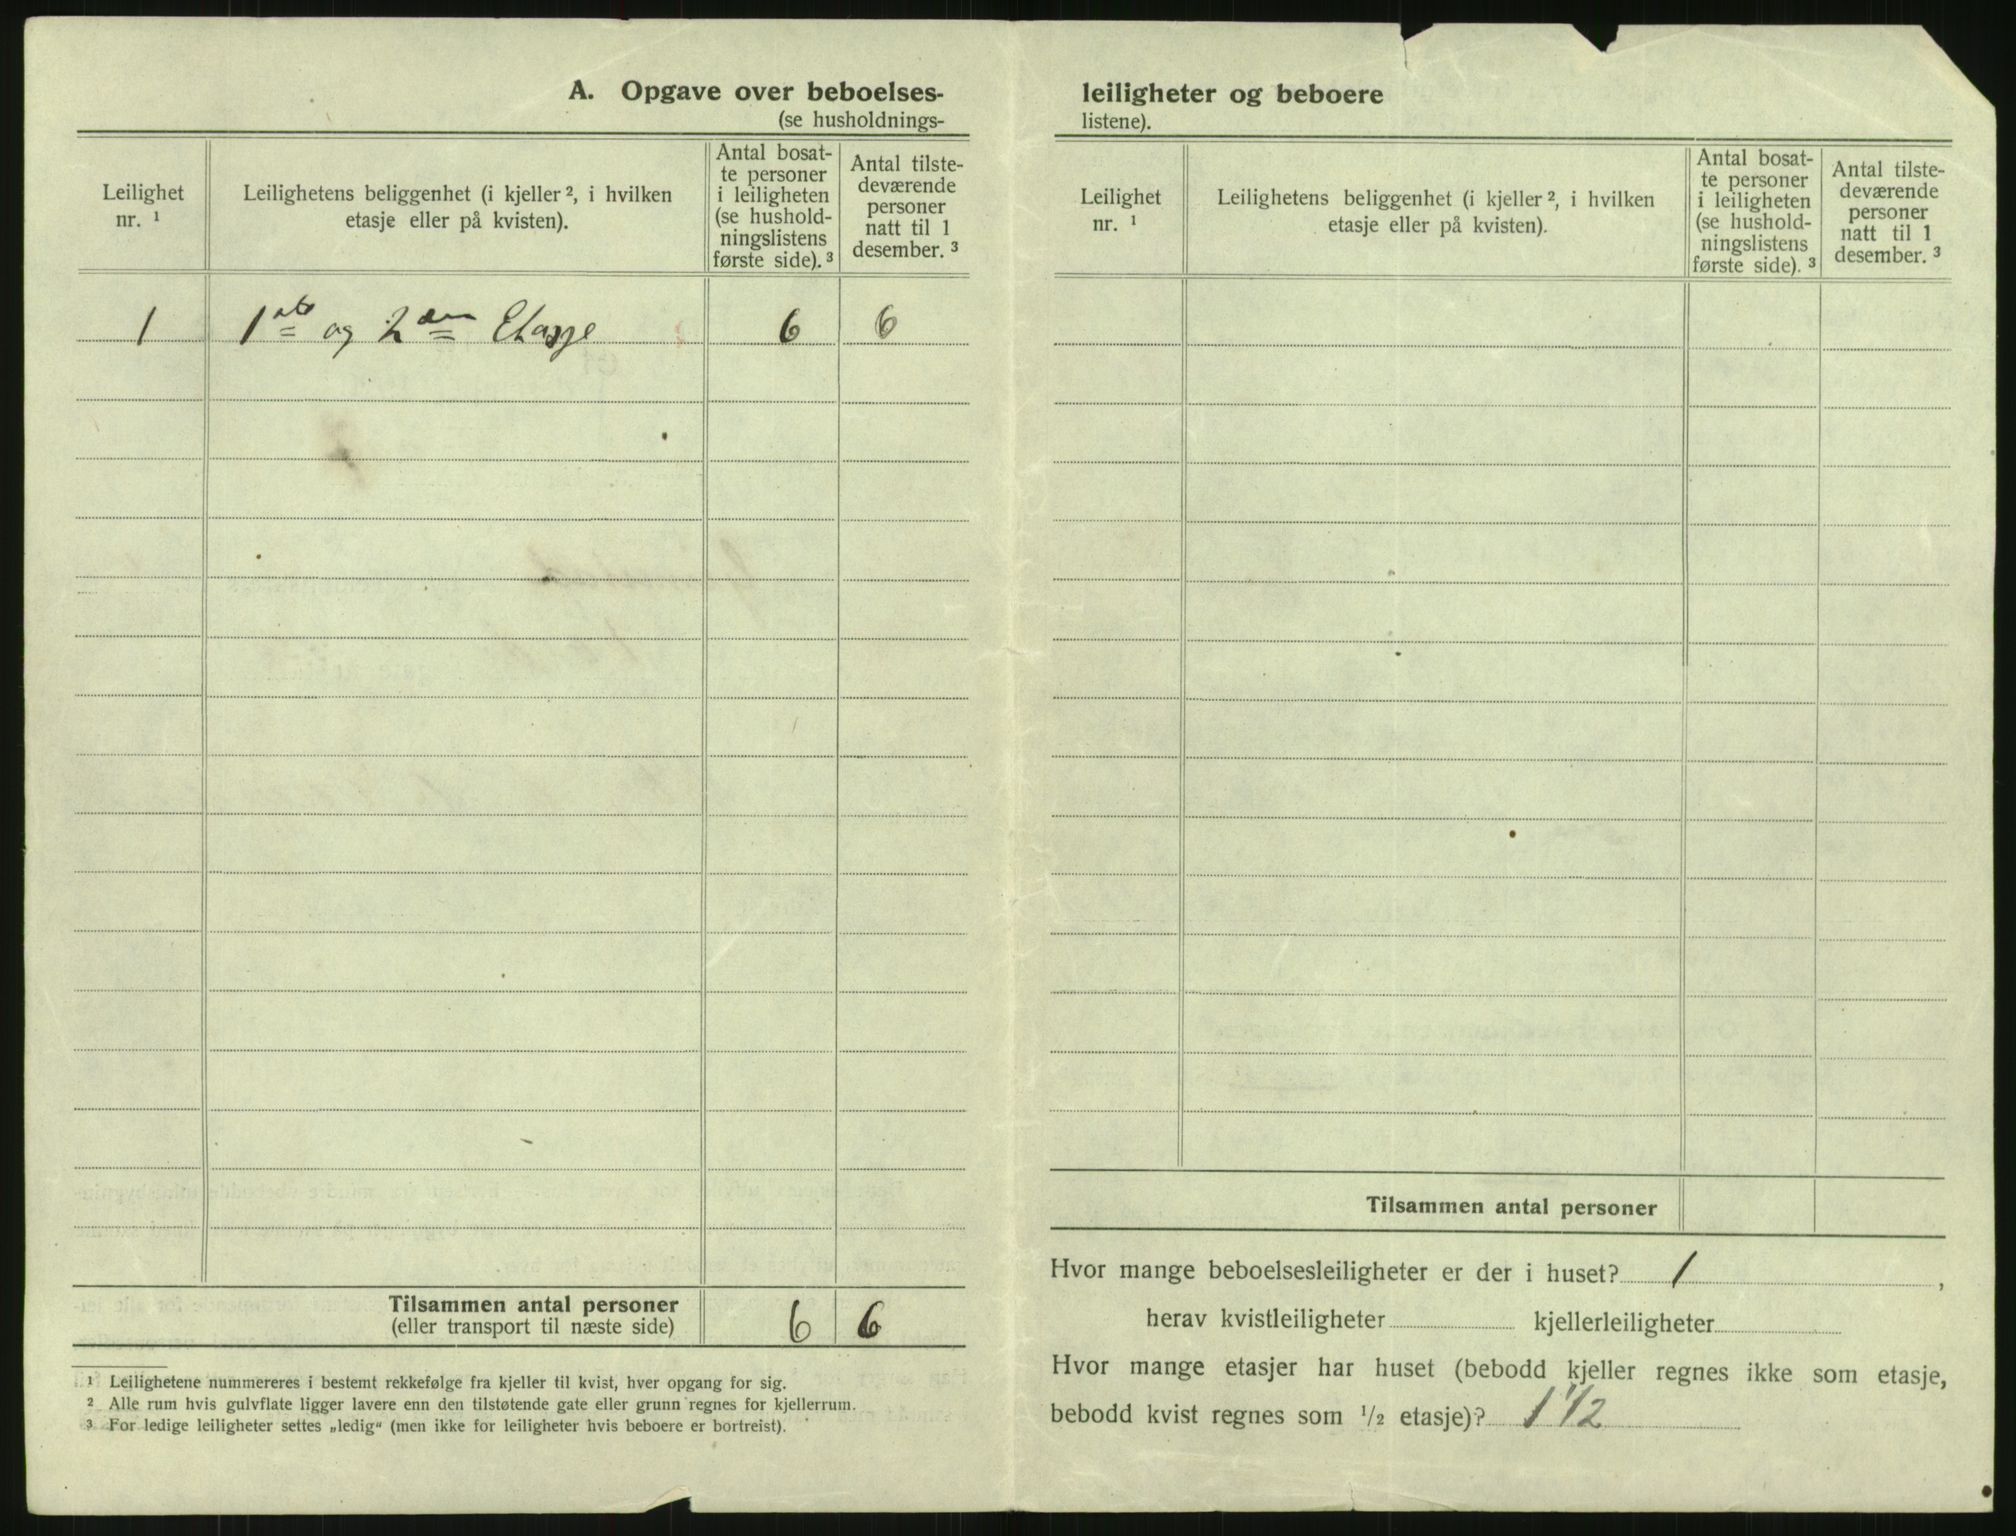 A. Opgave over beboelses-
(se husholdnings-
Leilighet nr. ¹
Leilighetens beliggenhet (i kjeller ², i hvilken etasje eller på kvisten).
Antal bosat-
te personer
i leiligheten
(se hushold-
ningslistens
første side). ³
Antal tilste-
deværende
personer
natt til 1
desember. ³
1 1ste og 2den Etasje 6 6
Tilsammen antal personer 6 6
(eller transport til næste side)
¹ Leilighetene nummereres i bestemt rekkefølge fra kjeller til kvist, hver opgang for sig.
² Alle rum hvis gulvflate ligger lavere enn den tilstøtende gate eller grunn regnes for kjellerrum.
³ For ledige leiligheter settes „ledig“ (men ikke for leiligheter hvis beboere er bortreist).
leiligheter og beboere
listene).
Leilighet nr. ¹
Leilighetens beliggenhet (i kjeller ², i hvilken etasje eller på kvisten).
Antal bosat-
te personer
i leiligheten
(se hushold-
ningslistens
første side). ³
Antal tilste-
deværende
personer
natt til 1
desember. ³
Tilsammen antal personer
Hvor mange beboelsesleiligheter er der i huset? 1 ,
herav kvistleiligheter kjellerleiligheter
Hvor mange etasjer har huset (bebodd kjeller regnes ikke som etasje,
bebodd kvist regnes som ¹/₂ etasje)? 1 1/2